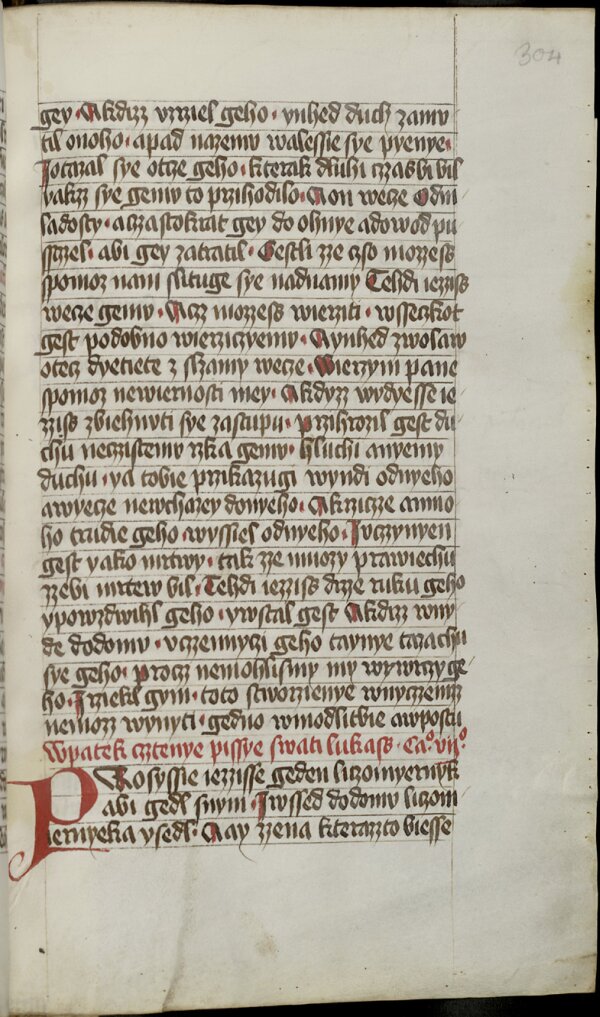 304
gey · Akdizz vzrziel geho · ynhed duch zamu
til onoho · apad nazemu walessie sye pyenye ·
Jotazal sye otcze geho · kterak dluhi czas bi bil
yakzz sye gemu to przihodilo · Aon wecze Odm
ladosty · aczastokrat gey do ohnye adowod pu
sczel · abi gey zatratil · Gestli zze czso mozzess
spomoz nam slituge sye nadnamy Tehdi iezziss
wecze gemu · Acz mozzess wierziti · wsseczkot
gest podobno wierziczyemu · Aynhed zwolaw
otecz dyetiete z slzamy wecze · Wierzym pane
spomoz newiernosti mey · Akdyzz wydyesse ie
zziss zbiehnuti sye zastupu · przihrozil gest du
chu neczistemu rzka gemu · hluchi anyemy
duchu · ya tobie przikazugi wyndi odnyeho
awyecze newchazey donyeho · Akrzicze amno
ho trudie geho · wyssiel odnyeho · Juczynyen
gest yako mrtwy · tak zze mnozy prawiechu
zzebi mrtew bil · Tehdi iezziss drze ruku geho
ypowzdwihl geho · ywstal gest Akdizz wny
de dodomu · vczennyczi geho taynye tazachu
sye geho · procz nemohlismy my wywrczy ge
ho · Jrziekl gym · toto stworzienye wnyczemzz
nemozz wynyti · gedno wmodlitbie awpostu
Wpatek cztenye pissye swati lukass · Ca° vii°
PRosyssie iezzisse geden liczomyernyk
abi gedl snym · Jwssed dodomu liczom
iernyeka vsedl · Aay zzena kterazzto biesse